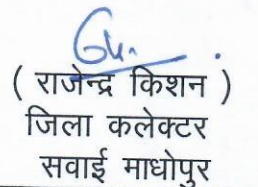 ( राजेन्द्र किशन )
जिला कलेक्टर
सवाई माधोपुर